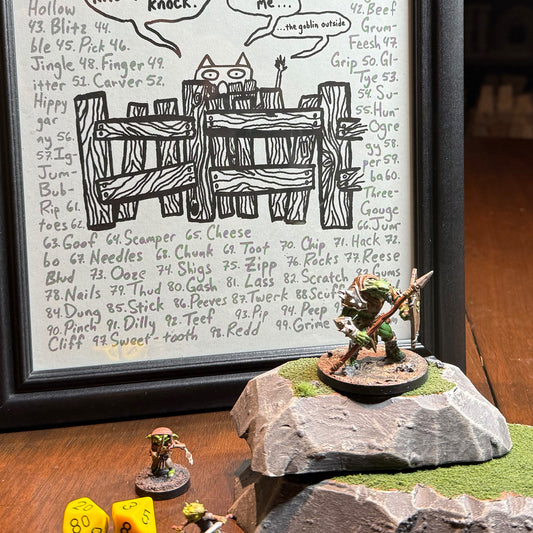 KNOCK.
ME...
...the goblin outside
Hollow
43. Blitz 44.
ble 45. Pick 46.
Jingle 48. Finger 49.
itter 51. Carver 52.
Hippy
gar
ny 56.
57. Ig-
Jum-
Bub-
Rip 61.
toes 62.
42. Beef
Grum-
Feesh 47.
Grip 50. Gl-
Tye 53.
54. Su-
55. Hun-
Ogre
gy 58.
per 59.
ba 60.
Three-
Gouge
63. Goof 64. Scamper 65. Cheese 66. Jum
bo 67. Needles 68. Chunk 69. Toot 70. Chip 71. Hack 72.
Blud 73. Ooze 74. Shigs 75. Zipp 76. Rocks 77. Reese
78. Nails 79. Thud 80. Gash 81. Lass 82. Scratch 83. Gums
84. Dung 85. Stick 86. Peeves 87. Twerk 88. Scuff
90. Pinch 91. Dilly 92. Teef 93. Pip 94. Peep
Cliff 97. Sweet-tooth 98. Redd 99. Grime
20
80
3
5